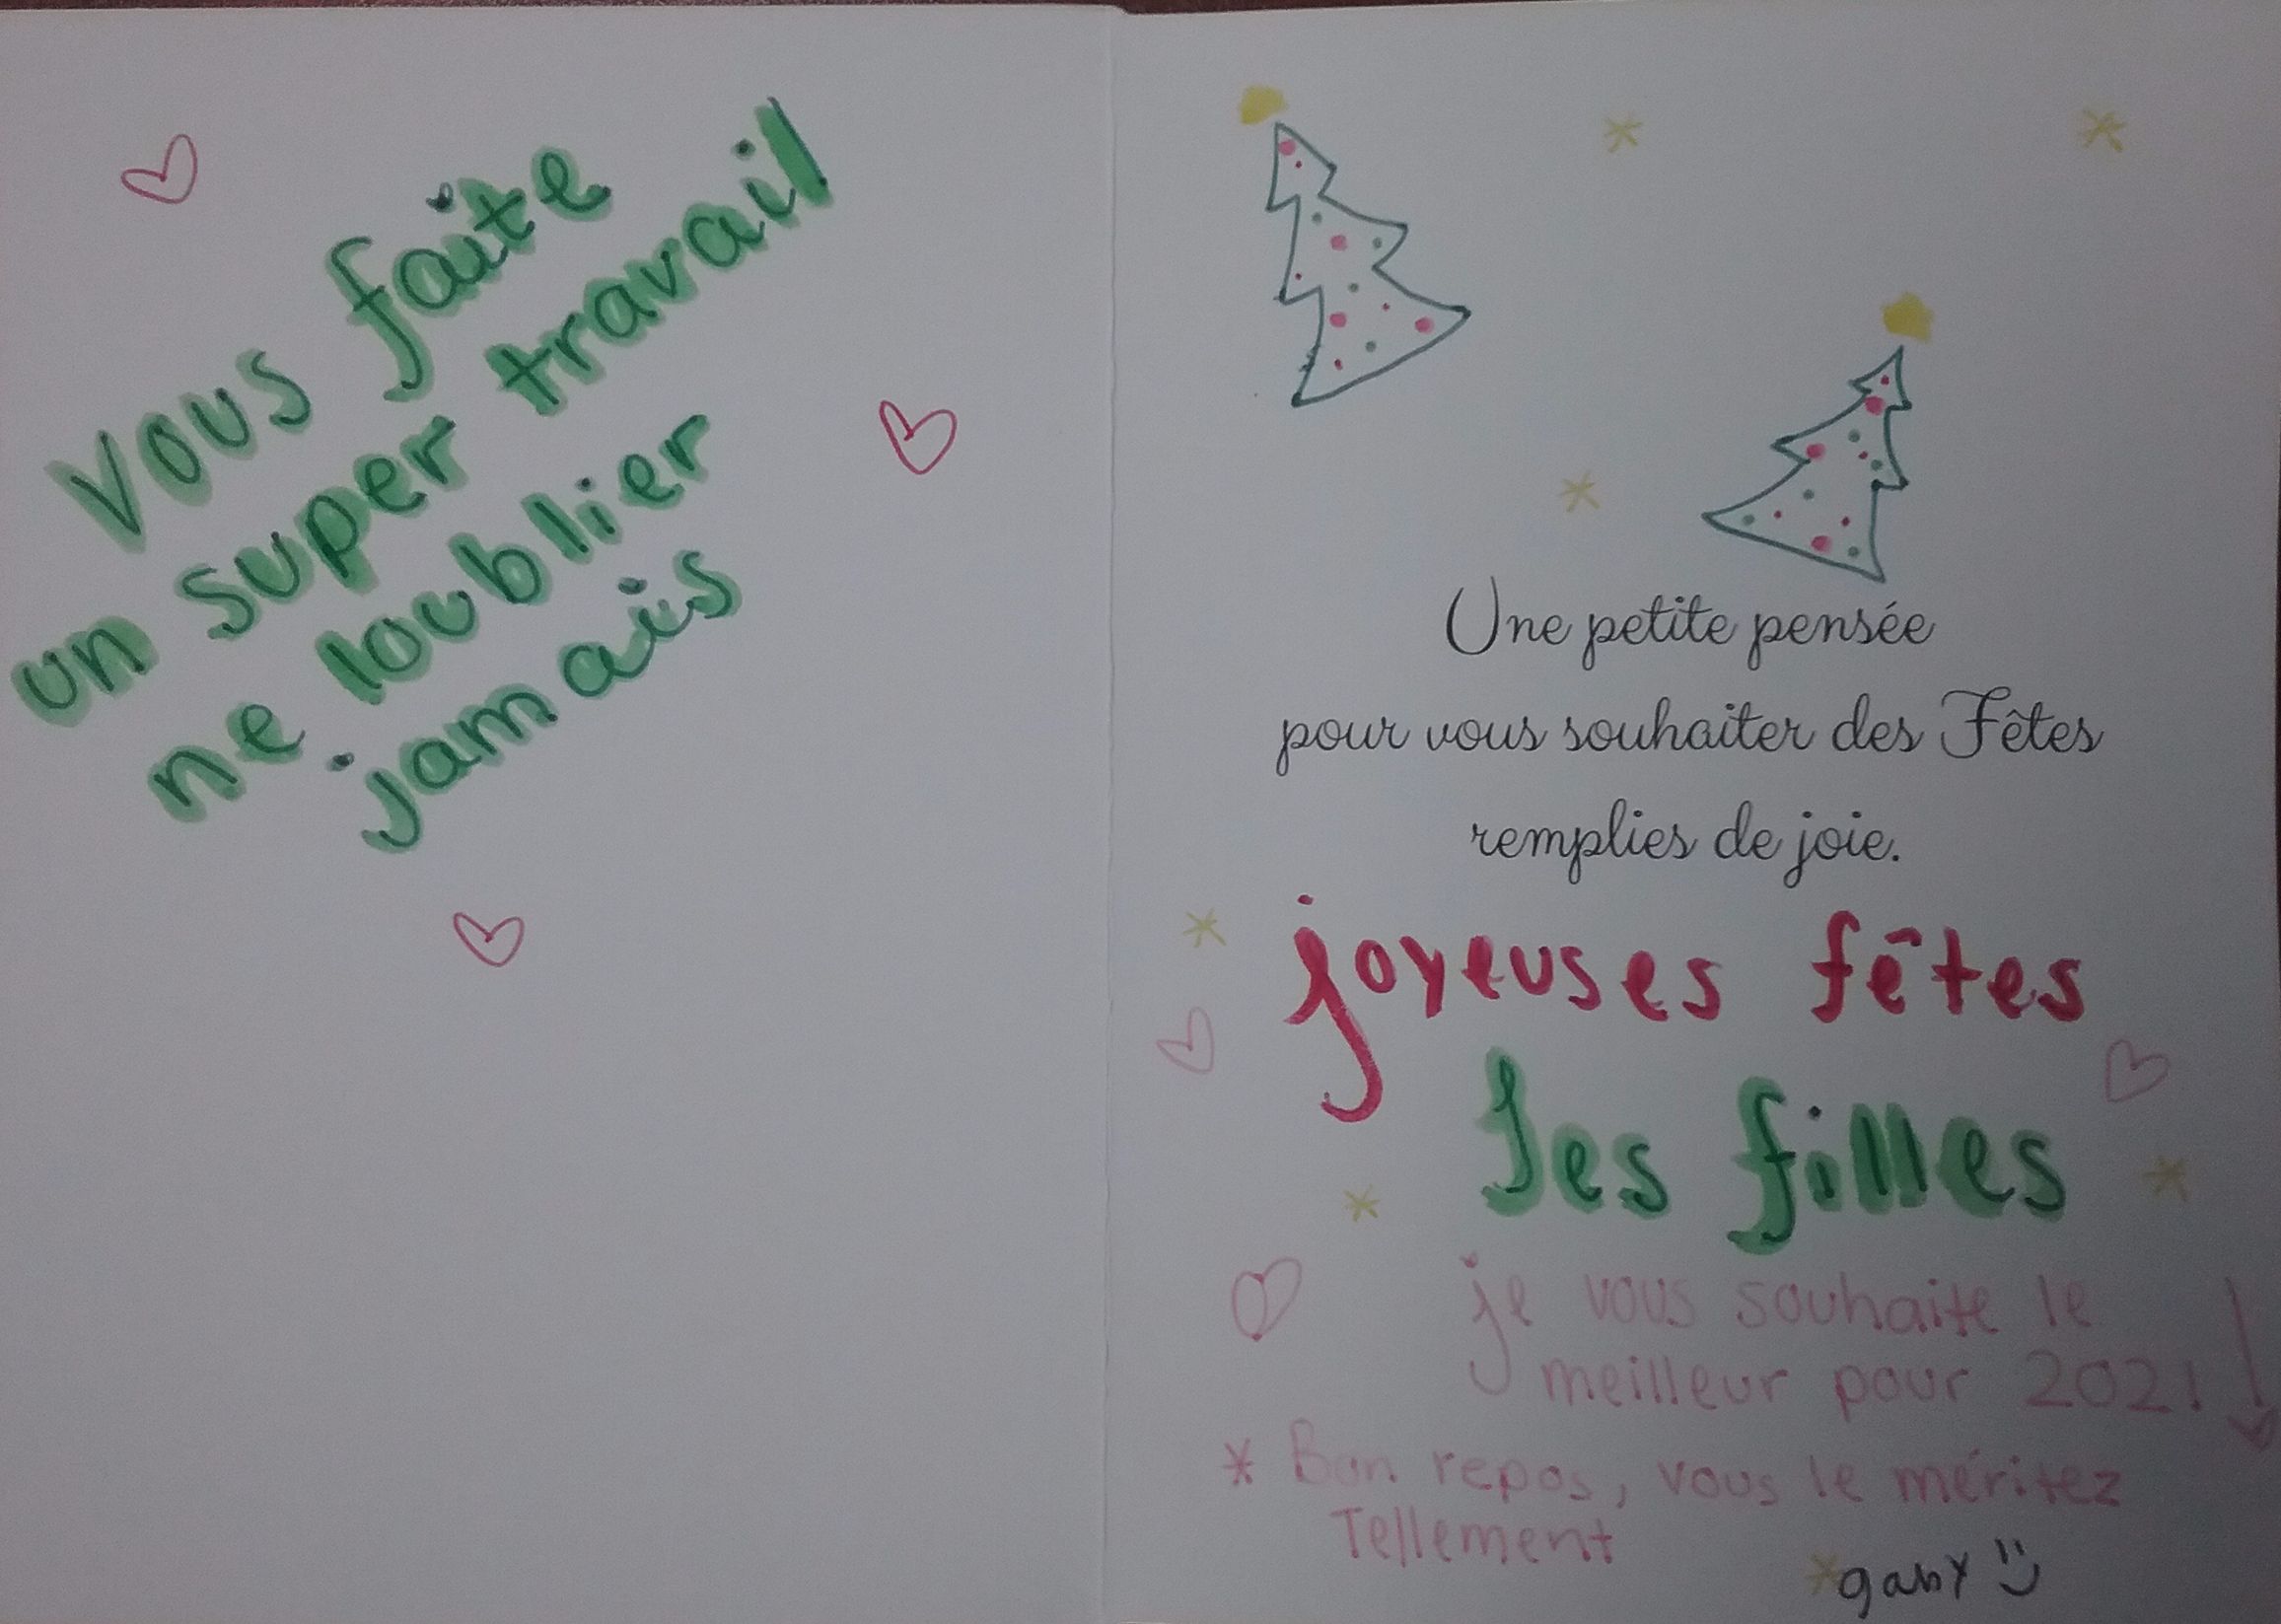 Vous faite
un super travail
ne loublier
jamais
Une petite pensée
pour vous souhaiter des Fêtes
remplies de joie.
joyeuses fêtes
les filles
je vous souhaite le
meilleur pour 2021
* Bon repos, vous le méritez
Tellement
gaby